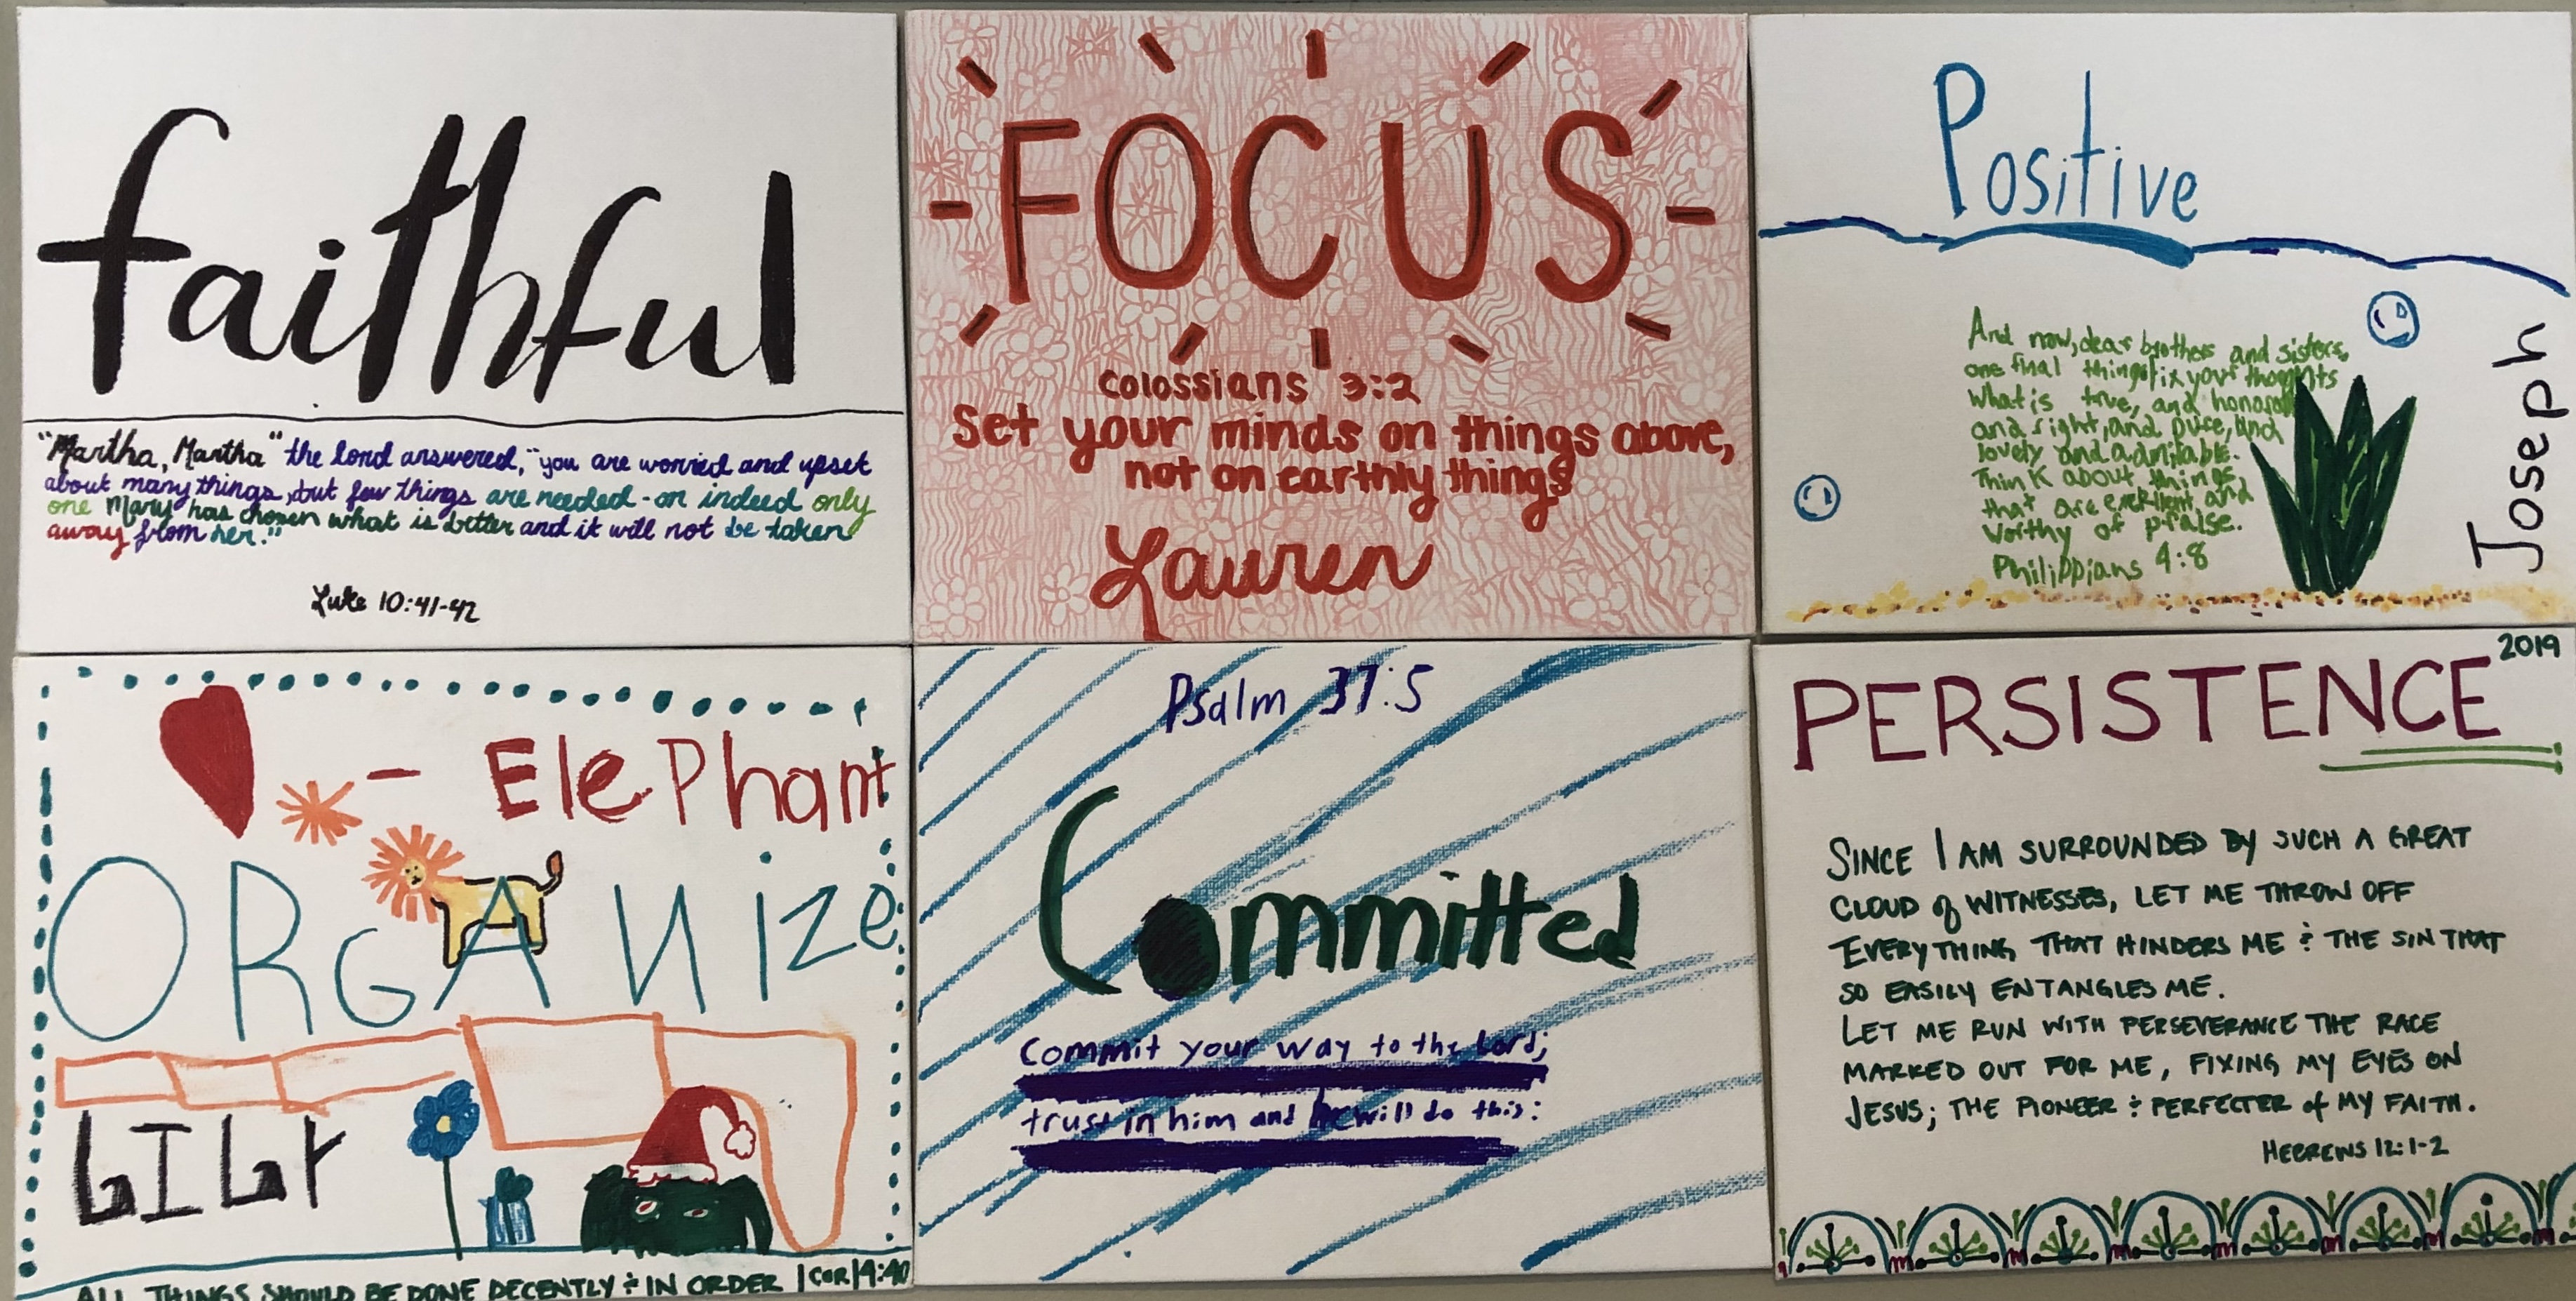 faithful
"Martha, Martha" the lord answered, "you are worried and upset
about many things, but few things are needed - or indeed only
one Mary has chosen what is better and it will not be taken
away from her."
Luke 10:41-42
FOCUS
Colossians 3:2
Set your minds on things above,
not on earthly things
Lauren
Positive
And now, dear brothers and sisters,
one final thing fix your thoughts
what is true, and
and right, and pure, and
lovely and admirable.
Think about things
that are excellent and
worthy of praise.
Philippians 4:8
Joseph
- ElePhant
ORGANize
LILY
ALL THINGS SHOULD BE DONE DECENTLY & IN ORDER 1 COR 14:40
Psalm 37:5
Committed
Commit your way to the Lord;
trust in him and he will do this:
2019
PERSISTENCE
SINCE I AM SURROUNDED BY SUCH A GREAT
CLOUD of WITNESSES, LET ME THROW OFF
EVERYTHING THAT HINDERS ME & THE SIN THAT
SO EASILY ENTANGLES ME.
LET ME RUN WITH PERSEVERANCE THE RACE
MARKED OUT FOR ME, FIXING MY EYES ON
JESUS; THE PIONEER & PERFECTER of MY FAITH.
HEBREWS 12:1-2